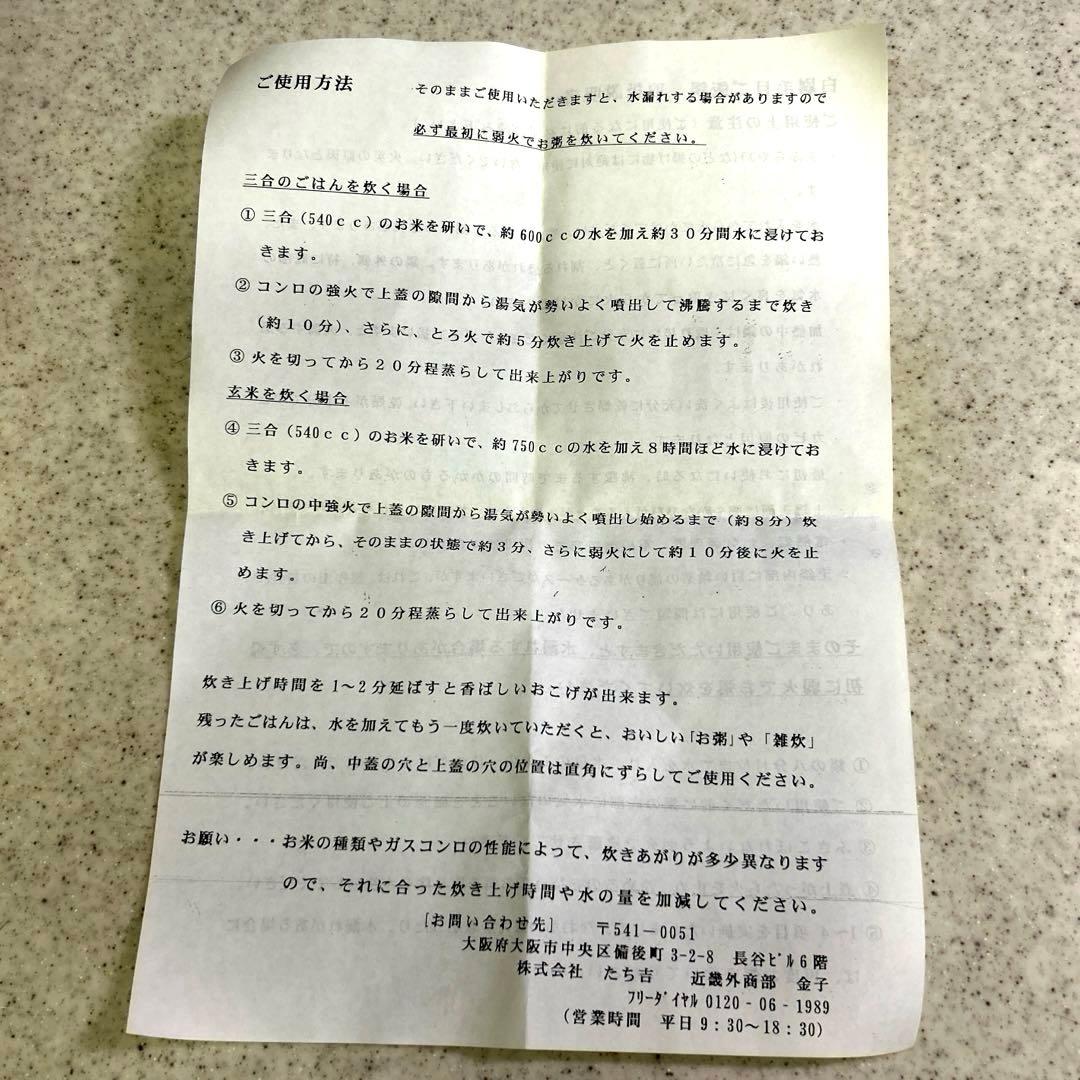 ご使用方法
そのままご使用いただきますと、水漏れする場合がありますので
必ず最初に弱火でお粥を炊いてください。
三合のごはんを炊く場合
① 三合(540cc)のお米を研いで、約600ccの水を加え約30分間水に浸けてお
きます。
② コンロの強火で上蓋の隙間から湯気が勢いよく噴出して沸騰するまで炊き
(約10分)、さらに、とろ火で約5分炊き上げて火を止めます。
③ 火を切ってから20分程蒸らして出来上がりです。
玄米を炊く場合
④ 三合(540cc)のお米を研いで、約750ccの水を加え8時間ほど水に浸けてお
きます。
⑤ コンロの中強火で上蓋の隙間から湯気が勢いよく噴出し始めるまで(約8分)炊
き上げてから、そのままの状態で約3分、さらに弱火にして約10分後に火を止
めます。
⑥ 火を切ってから20分程蒸らして出来上がりです。
炊き上げ時間を1~2分延ばすと香ばしいおこげが出来ます。
残ったごはんは、水を加えてもう一度炊いていただくと、おいしい「お粥」や「雑炊」
が楽しめます。尚、中蓋の穴と上蓋の穴の位置は直角にずらしてご使用ください。
お願い・・・お米の種類やガスコンロの性能によって、炊きあがりが多少異なります
ので、それに合った炊き上げ時間や水の量を加減してください。
[お問い合わせ先] 〒541-0051
大阪府大阪市中央区備後町3-2-8 長谷ビル6階
株式会社 たち吉 近畿外商部 金子
フリーダイヤル 0120-06-1989
(営業時間 平日9:30~18:30)